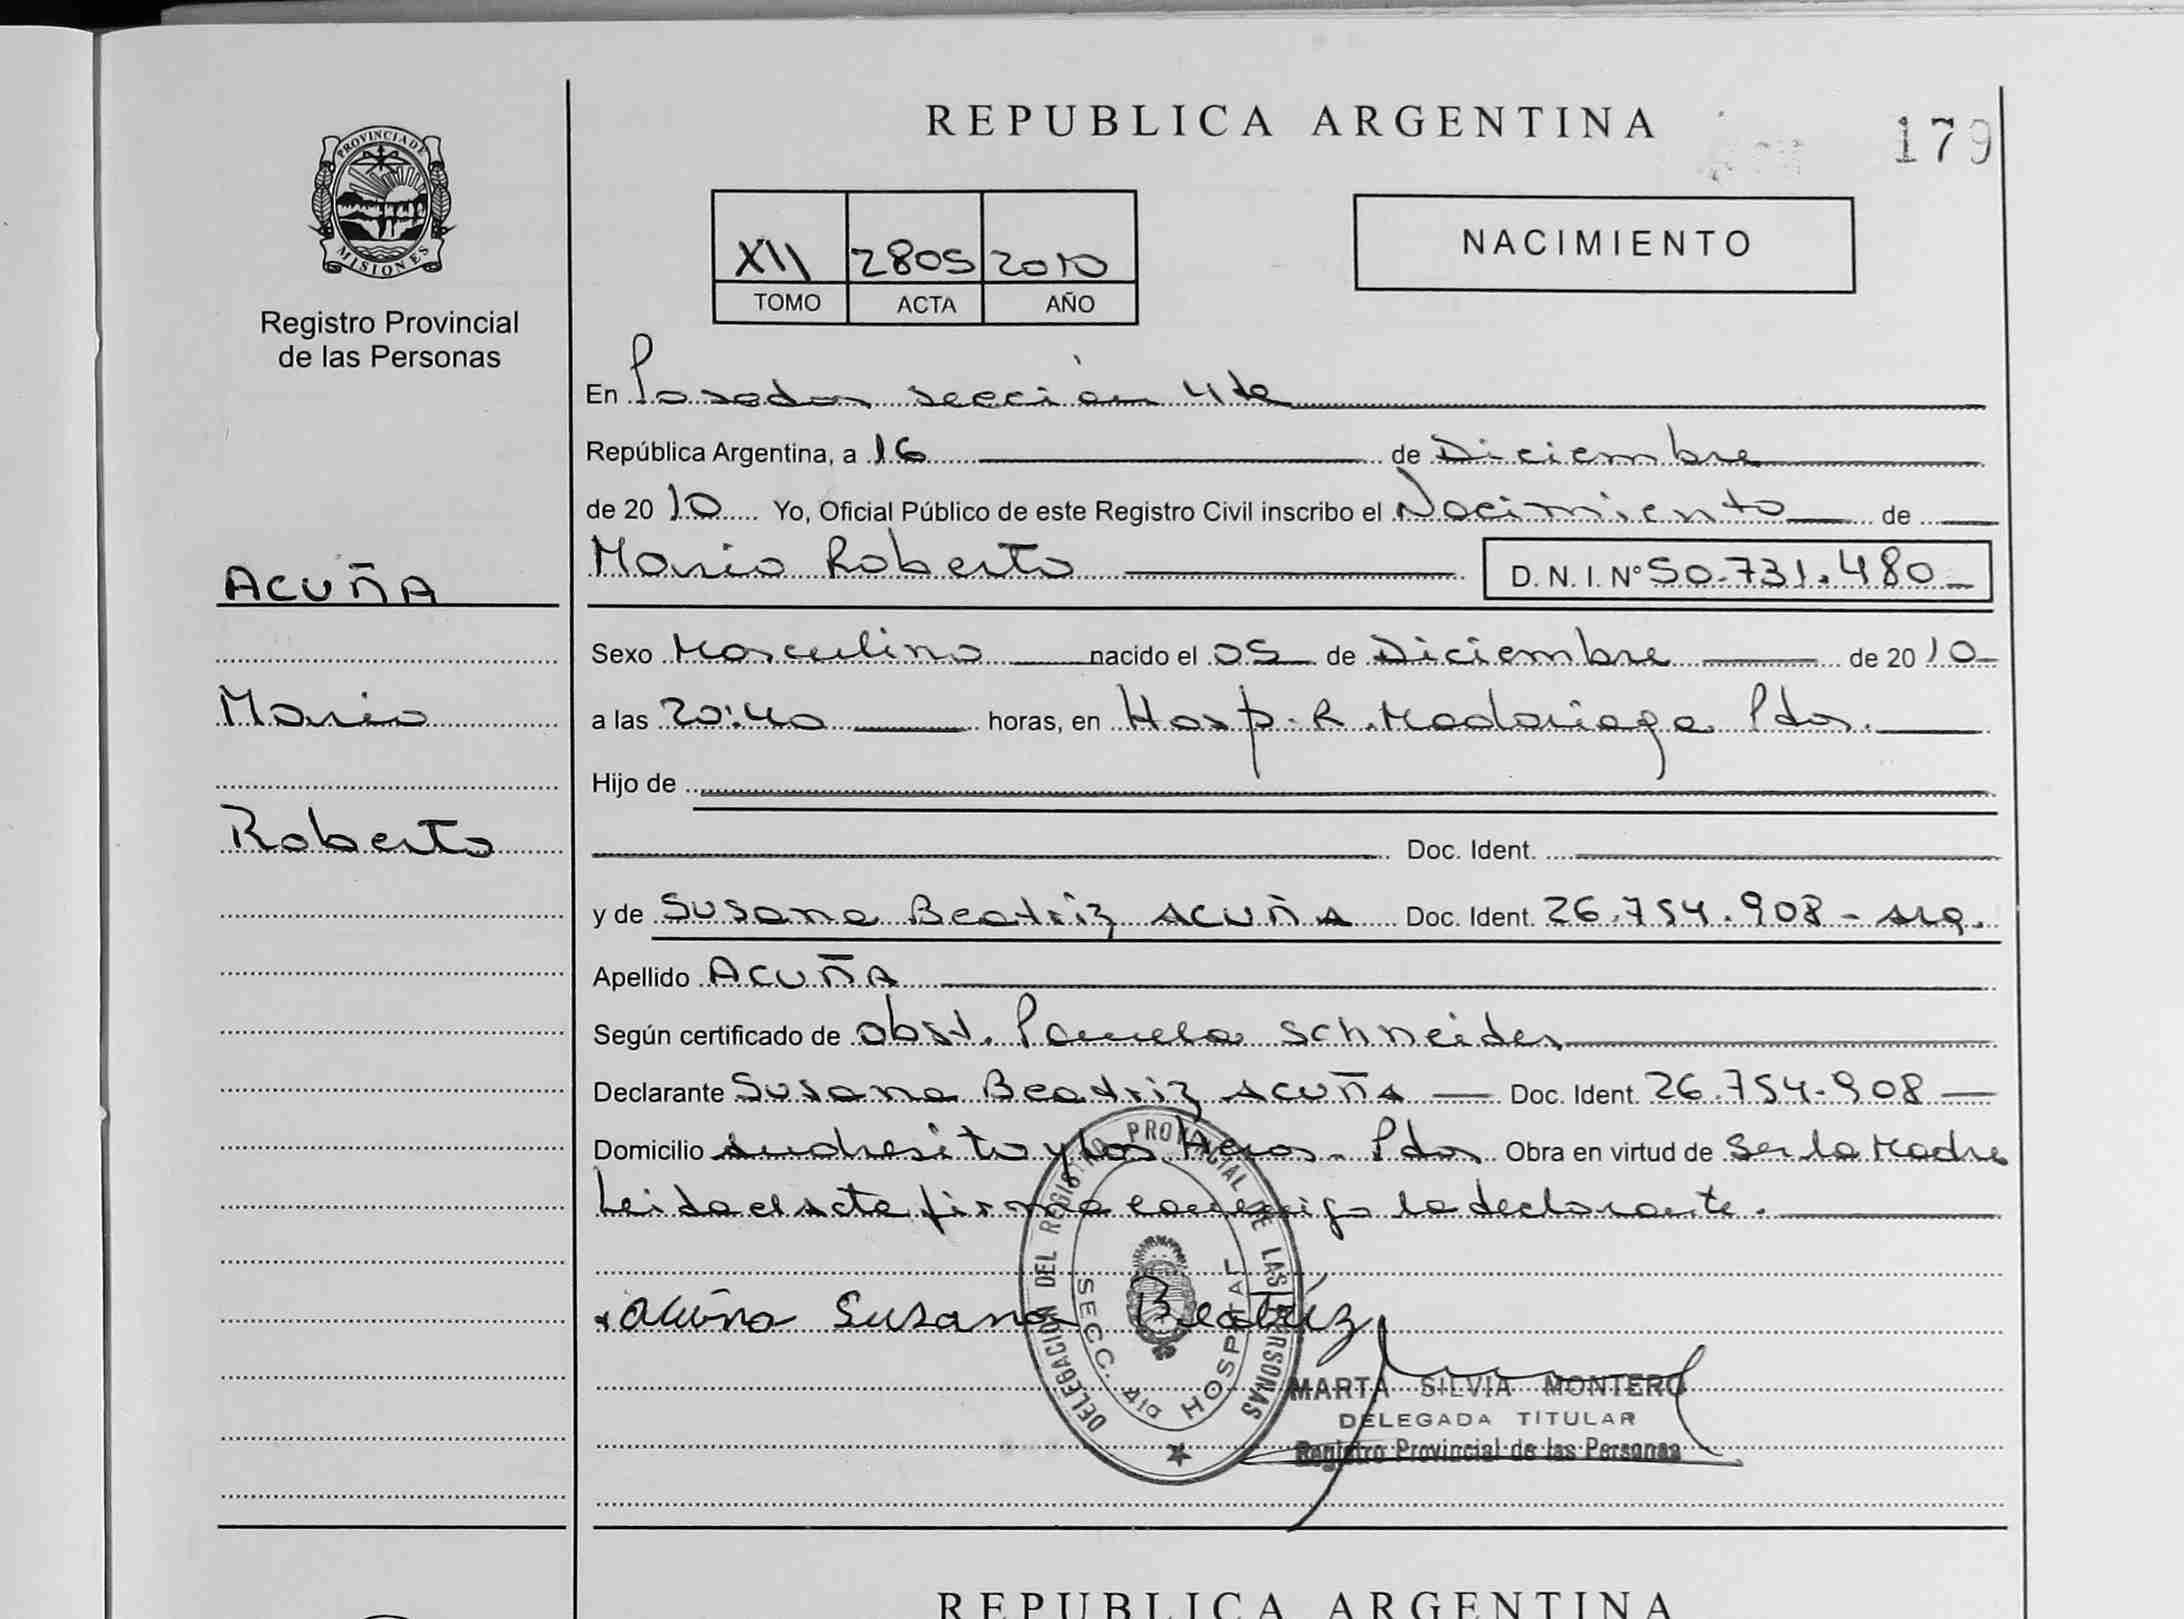 REPUBLICA ARGENTINA
179
PROVINCIA DE
MISIONES
Registro Provincial
de las Personas
XII 2805 2010
TOMO ACTA AÑO
NACIMIENTO
En Posadas sección 4ta
República Argentina, a 16 de Diciembre
de 2010 Yo, Oficial Público de este Registro Civil inscribo el Nacimiento de
ACUÑA
Mario Roberto D. N. I. Nº 50.731.480
Sexo Masculino nacido el 05 de Diciembre de 2010
Mario
a las 20:40 horas, en Hosp. R. Madariaga Pdas.
Hijo de
Roberto
Doc. Ident.
y de Susana Beatriz ACUÑA Doc. Ident. 26.754.908 - arg.
Apellido ACUÑA
Según certificado de Obst. Pamela Schneider
Declarante Susana Beatriz ACUÑA Doc. Ident. 26.754.908
Domicilio Andresito y los Heros - Pdas Obra en virtud de Ser la Madre
Leida el acta firma conmigo la declarante.
Acuña Susana Beatriz
DELEGACION DEL REGISTRO PROVINCIAL DE LAS PERSONAS
SECC. 4ta HOSPITAL
MARTA SILVIA MONTERO
DELEGADA TITULAR
Registro Provincial de las Personas
REPUBLICA ARGENTINA